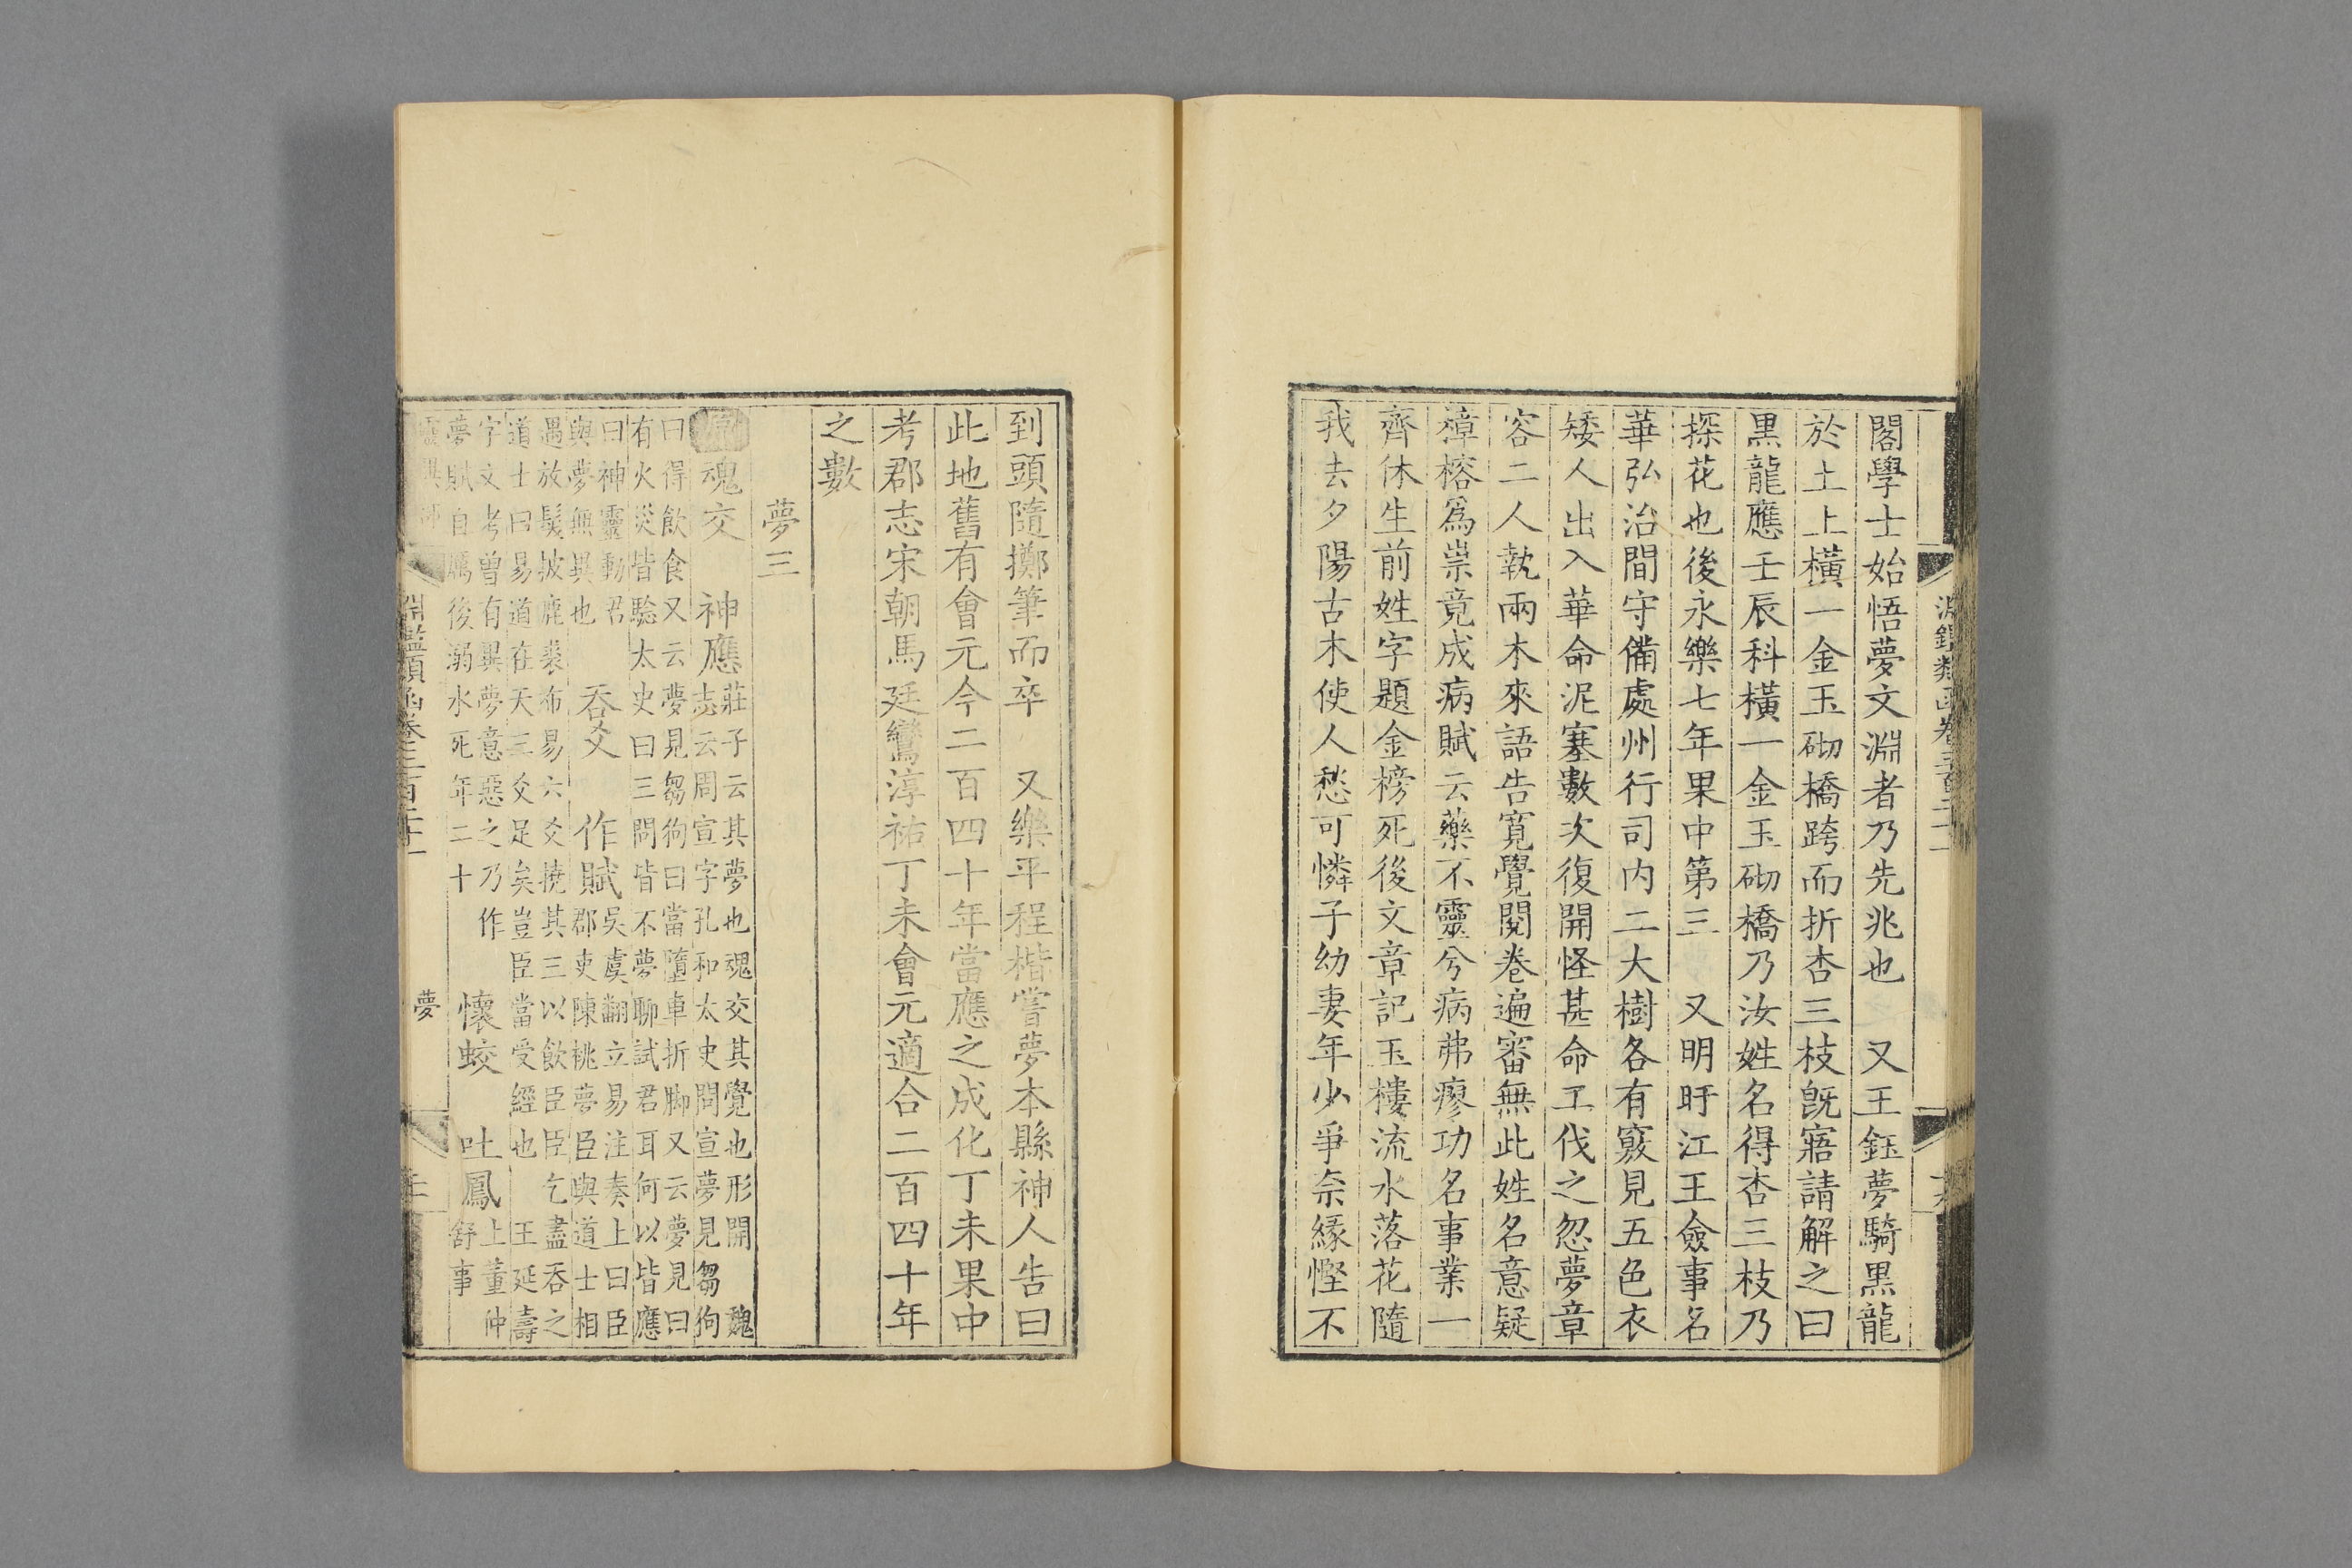 閣學士始悟夢文淵者乃先兆也 又王鈺夢騎黒龍
於土上橫一金玉砌橋跨而折杏三枝旣寤請解之曰
黒龍應壬辰科橫一金玉砌橋乃汝姓名得杏三枝乃
探花也後永樂七年果中第三 又明盱江王僉事名
華弘治間守備處州行司内二大樹各有竅見五色衣
矮人出入華命泥塞數次復開怪甚命工伐之忽夢章
容二人執兩木來語告寛覺閱卷遍審無此姓名意疑
樟榕爲祟竟成病賦云藥不靈兮病弗瘳功名事業一
齊休生前姓字題金榜死後文章記玉樓流水落花隨
我去夕陽古木使人愁可憐子幼妻年少爭奈緣慳不
到頭隨擲筆而卒 又樂平程楷嘗夢本縣神人告曰
此地舊有會元今二百四十年當應之成化丁未果中
考郡志宋朝馬廷鸞淳祐丁未會元適合二百四十年
之數
夢三
魂交 神應莊子云其夢也魂交其覺也形開 魏
志云周宣字孔和太史問宣夢見芻狗
曰得飲食又云夢見芻狗曰當墮車折脚又云夢見曰
有火災皆驗太史曰三問皆不夢聊試君耳何以皆應
曰神靈動君
與夢無異也 吞爻 作賦吳虞翻立易注奏上曰臣
郡吏陳桃夢臣與道士相
遇放髮披鹿裘布易六爻撓其三以飲臣臣乞盡吞之
道士曰易道在天三爻足矣豈臣當受經也 王延壽
字文考曾有異夢意惡之乃作
夢賦自厲後溺水死年二十 懷蛟 吐鳳上董仲
舒事
淵鑑類函卷三百二十一 夢